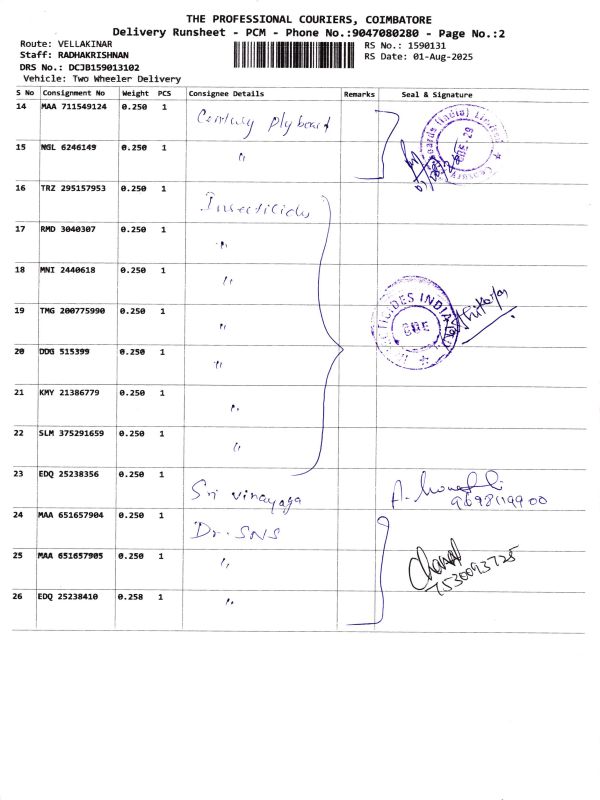 THE PROFESSIONAL COURIERS, COIMBATORE
Delivery Runsheet - PCM - Phone No.:9047080280 - Page No.:2
Route: VELLAKINAR
RS No.: 1590131
Staff: RADHAKRISHNAN
RS Date: 01-Aug-2025
DRS No.: DCJB159013102
Vehicle: Two Wheeler Delivery
S No Consignment No Weight PCS Consignee Details Remarks Seal & Signature
14 MAA 711549124 0.250 1 Century plyboard
15 NGL 6246149 0.250 1 "
16 TRZ 295157953 0.250 1 Insecticides
17 RMD 3040307 0.250 1 "
18 MNI 2440618 0.250 1 "
19 TMG 200775990 0.250 1 "
20 DDG 515399 0.250 1 "
21 KMY 21386779 0.250 1 "
22 SLM 375291659 0.250 1 "
23 EDQ 25238356 0.250 1 Sri Vinayaga
9698119900
24 MAA 651657904 0.250 1 Dr. SNS
25 MAA 651657905 0.250 1 "
7530093725
26 EDQ 25238410 0.258 1 "